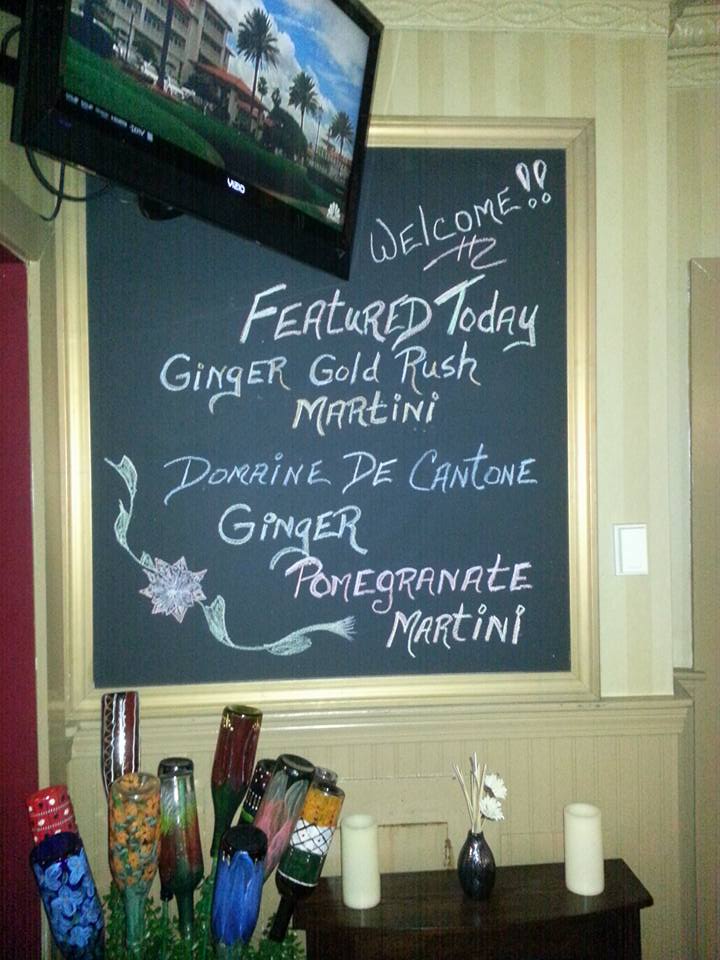 VIZIO
WELCOME!!
FEATURED Today
GINGER Gold Rush
MARtiNi
DOMAINE DE CANTONE
GINGER
POMEGRANATE
MARtiNi